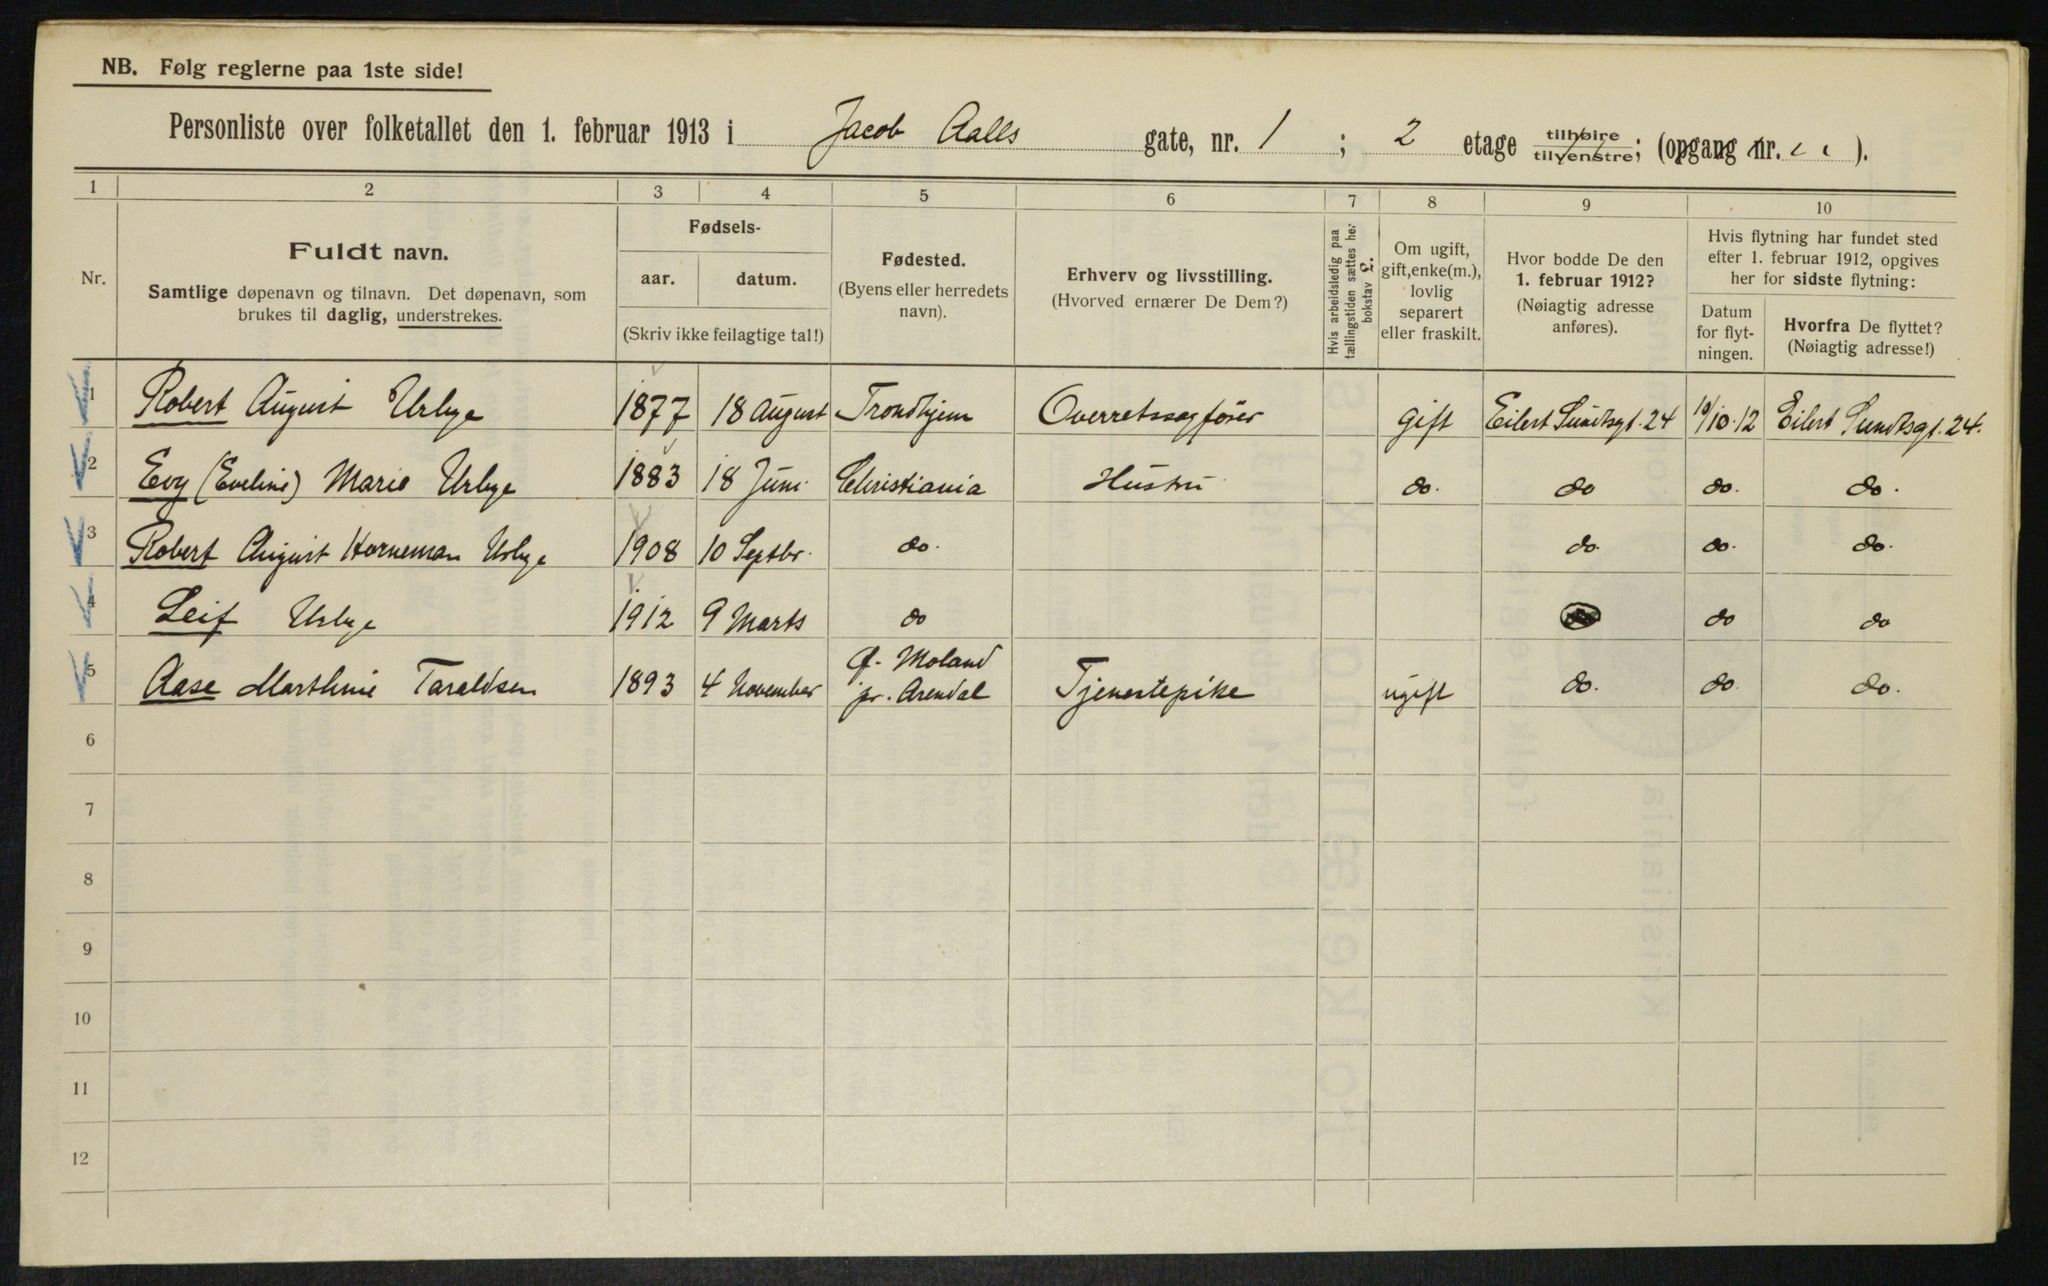 NB. Følg reglerne paa 1ste side!
Personliste over folketallet den 1. februar 1913 i Jacob Aalls gate, nr. 1 ; 2 etage tilhøire tilvenstre; (opgang nr. ).
1 2 3 4 5 6 7 8 9 10
Nr.
Fuldt navn.
Samtlige døpenavn og tilnavn. Det døpenavn, som
brukes til daglig, understrekes.
Fødsels-
aar. datum.
(Skriv ikke feilagtige tal!)
Fødested.
(Byens eller herredets
navn).
Erhverv og livsstilling.
(Hvorved ernærer De Dem?)
Hvis arbeidsledig paa
tællingstiden sættes her
bokstav L.
Om ugift,
gift, enke(m.),
lovlig
separert
eller fraskilt.
Hvor bodde De den
1. februar 1912?
(Nøiagtig adresse
anføres).
Hvis flytning har fundet sted
efter 1. februar 1912, opgives
her for sidste flytning:
Datum
for flyt-
ningen.
Hvorfra De flyttet?
(Nøiagtig adresse!)
1 Robert August Urbye 1877 18 August Trondhjem Overretssagfører gift Eilert Sundtsgt. 24 10/10.12 Eilert Sundtsgt. 24.
2 Evy (Eveline) Marie Urbye 1883 18 Juni Christiania Hustru do. do do. do.
3 Robert August Horneman Urbye 1908 10 Septbr. do. do. do. do.
4 Leif Urbye 1912 9 Marts do do do
5 Aase Marthine Taraldsen 1893 4 November Ø. Moland pr. Arendal Tjenestepike ugift do. do. do.
6
7
8
9
10
11
12